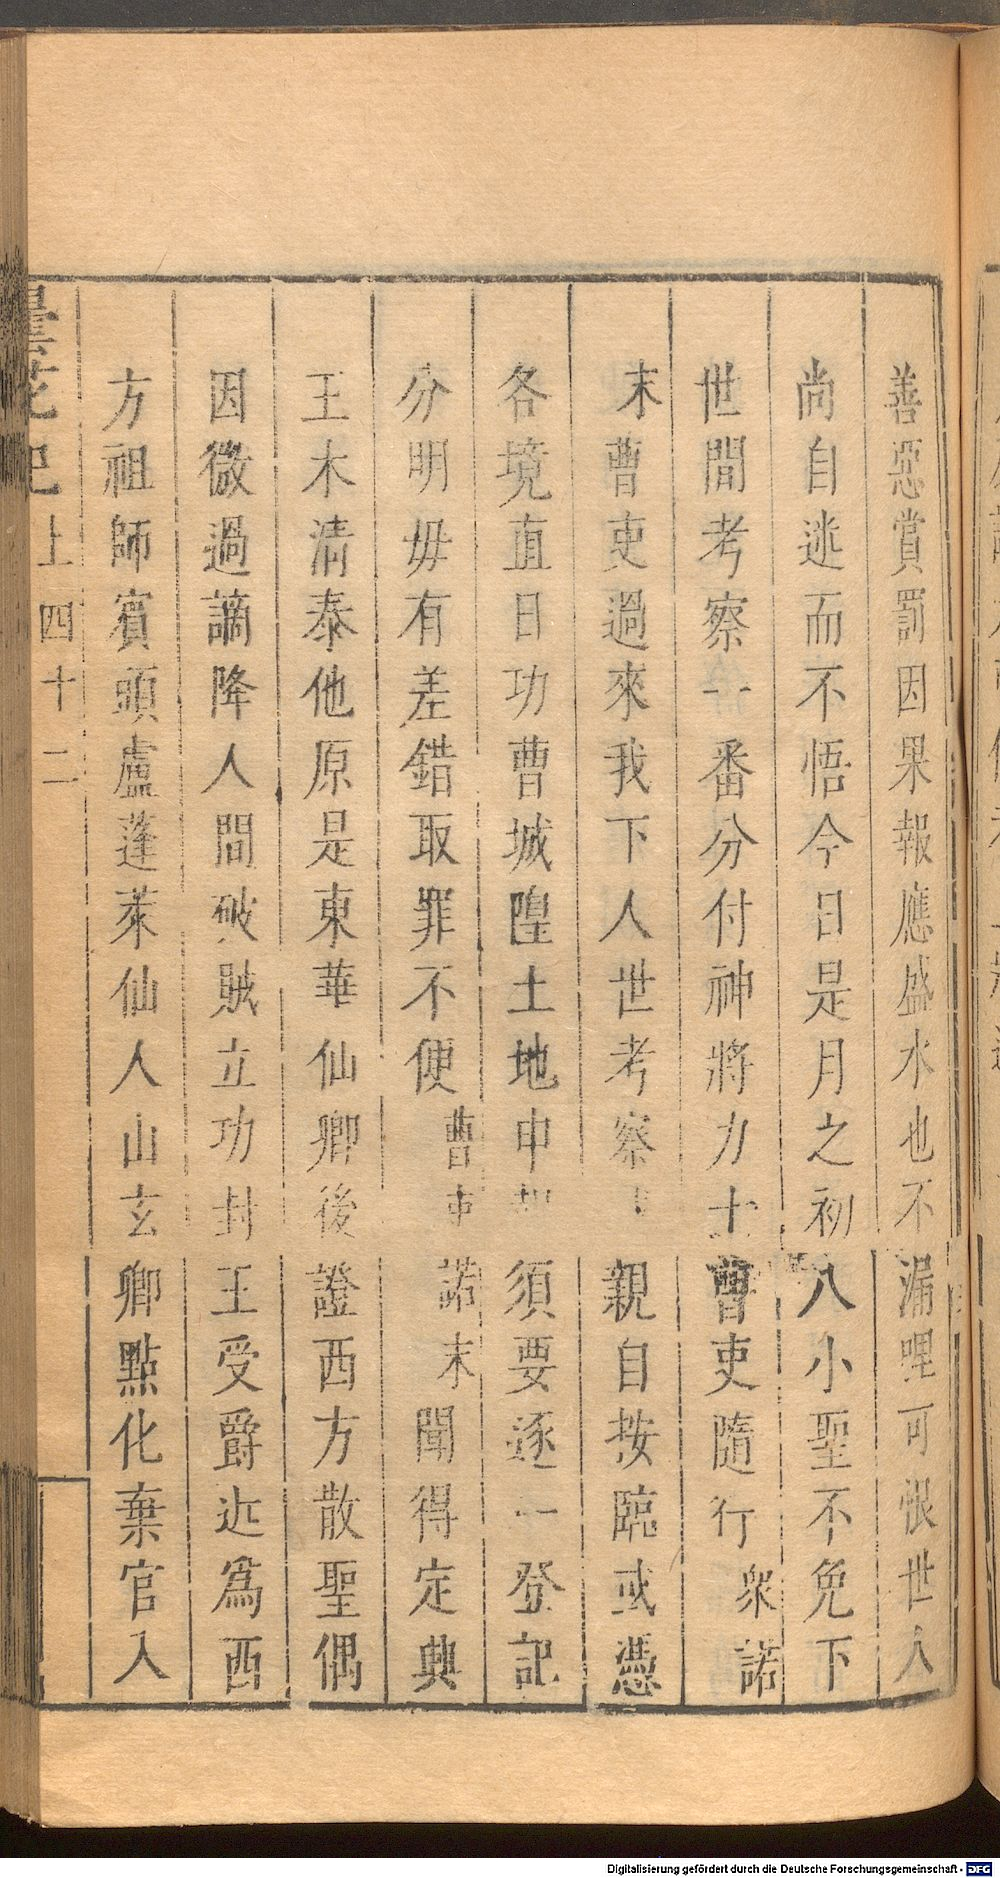 善惡賞罰因果報應盛水也不漏哩可恨世人
尚自迷而不悟今日是月之初八小聖不免下
世間考察一番分付神將力士曹吏隨行衆諾
末曹吏過來我下人世考察親自按臨或憑
各境直日功曹城隍土地申須要逐一登記
分明毋有差錯取罪不便曹吏諾末聞得定典
王木清泰他原是東華仙卿後證西方散聖偶
因微過謫降人間破賊立功封王受爵近爲西
方祖師賓頭盧蓬萊仙人山玄卿點化棄官入
曇花記上四十二
Digitalisierung gefördert durch die Deutsche Forschungsgemeinschaft - DFG